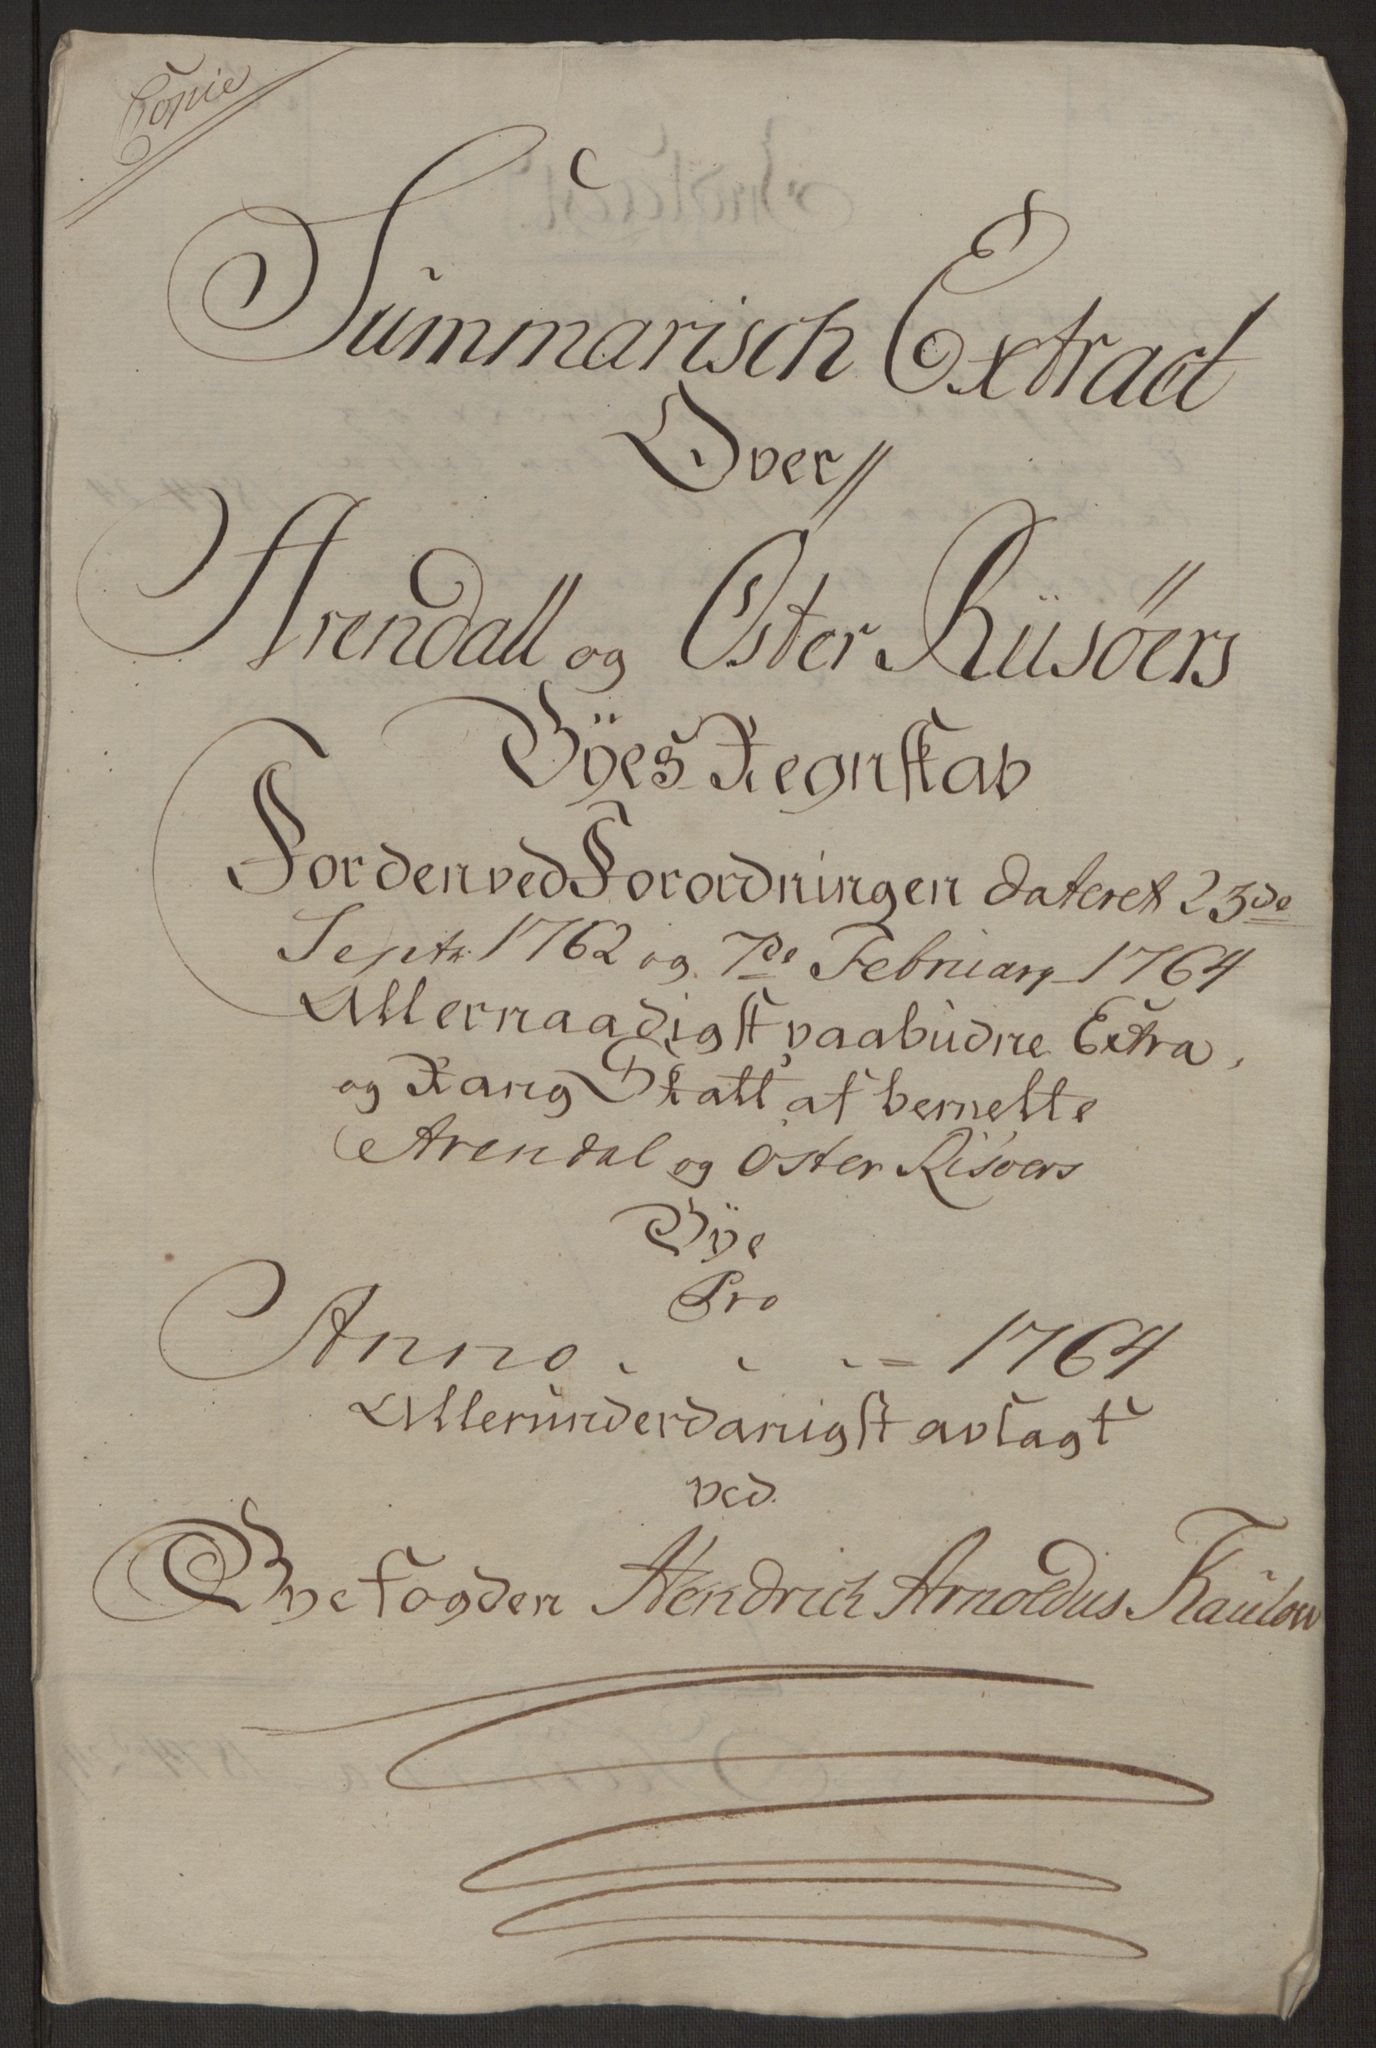 Copie
Summarisch Extract
Over
Arendall og Öster Riisöers
Byes Regnskab
For den ved Forordningen dateret 23de
Septr. 1762 og 7de Februarÿ 1764
Allernaadigst paabudne Extra
og Rang Skatt af bemelte
Arendal og öster Risöers
Bÿe
Pro
Anno 1764
Allerunderdanigst avlagt
ved
Byefogden Hendrich Arnoldus Thaulow
1814 24